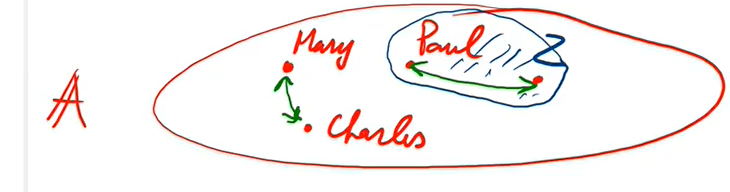 Mary Paul Z
A
Charles